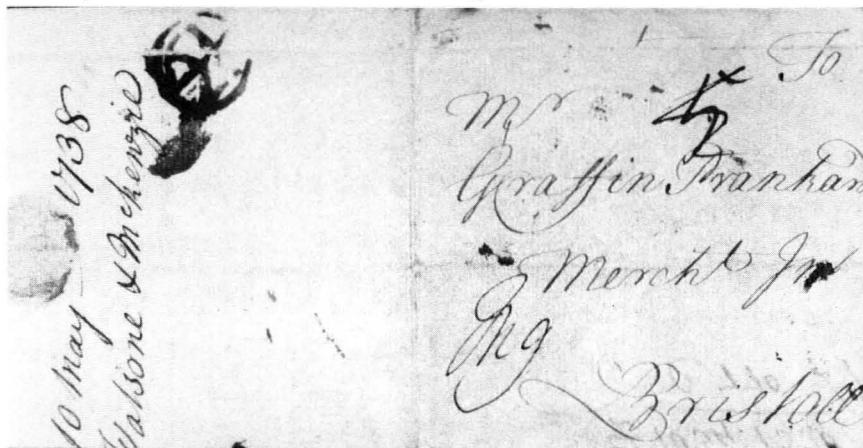 10 May 1738
Watsone & Mckenzie
To
Mr
Graffin Prankard
Mercht In
Bristoll